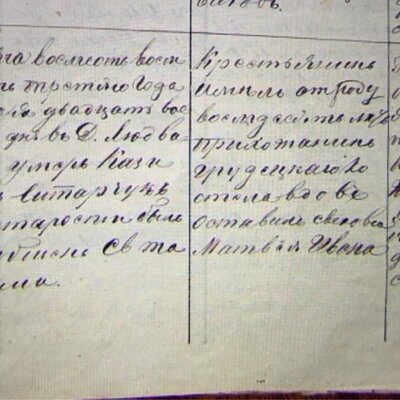 ча восмсотъ восм
третяго года
двадцать вос
дня въ Д. Любова
умеръ Кази
Витарчукъ
старости былъ
Св та
ма.
Крестьянинъ
имѣлъ отроду
восмдесятъ лѣтъ
прихожанинъ
грудецкаго ко
стела вдовъ
оставилъ сыновъ
Матвѣя Ивана